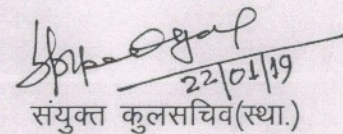 22/01/19
संयुक्त कुलसचिव(स्था.)